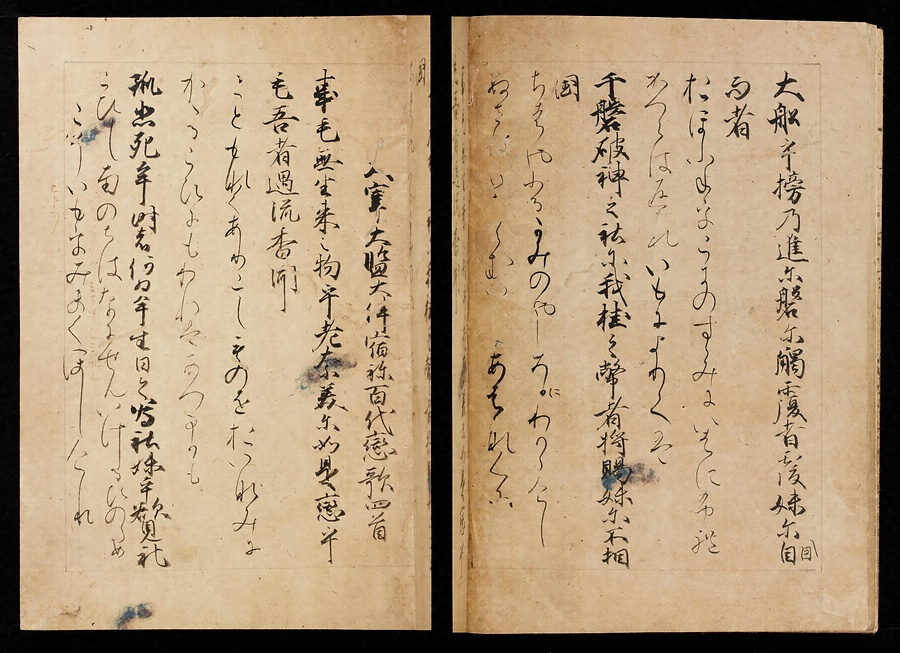 大船乎榜乃進尓磐尓觸覆者覆妹尓自
而者
おほふねをこきのすゝみにいはにふれ
かへらはかへれいもによりては
千磐破神之社尓我掛之幣者将賜妹尓不相
國
ちはやふるかみのやしろにわかかけし
ぬさは あはなくに
大宰大監大伴宿祢百代戀歌四首
事毛無生来之物乎老奈美尓如是戀乎
毛吾者遇流香聞
こともなくあれこしものをおいなみに
かゝるこひにもわれはあへるかも
孤悲死牟時者何為牟生日之為社妹乎欲見礼
こひしなむのちはなにせんいけるひのため
こそいもをみまくほしけれ